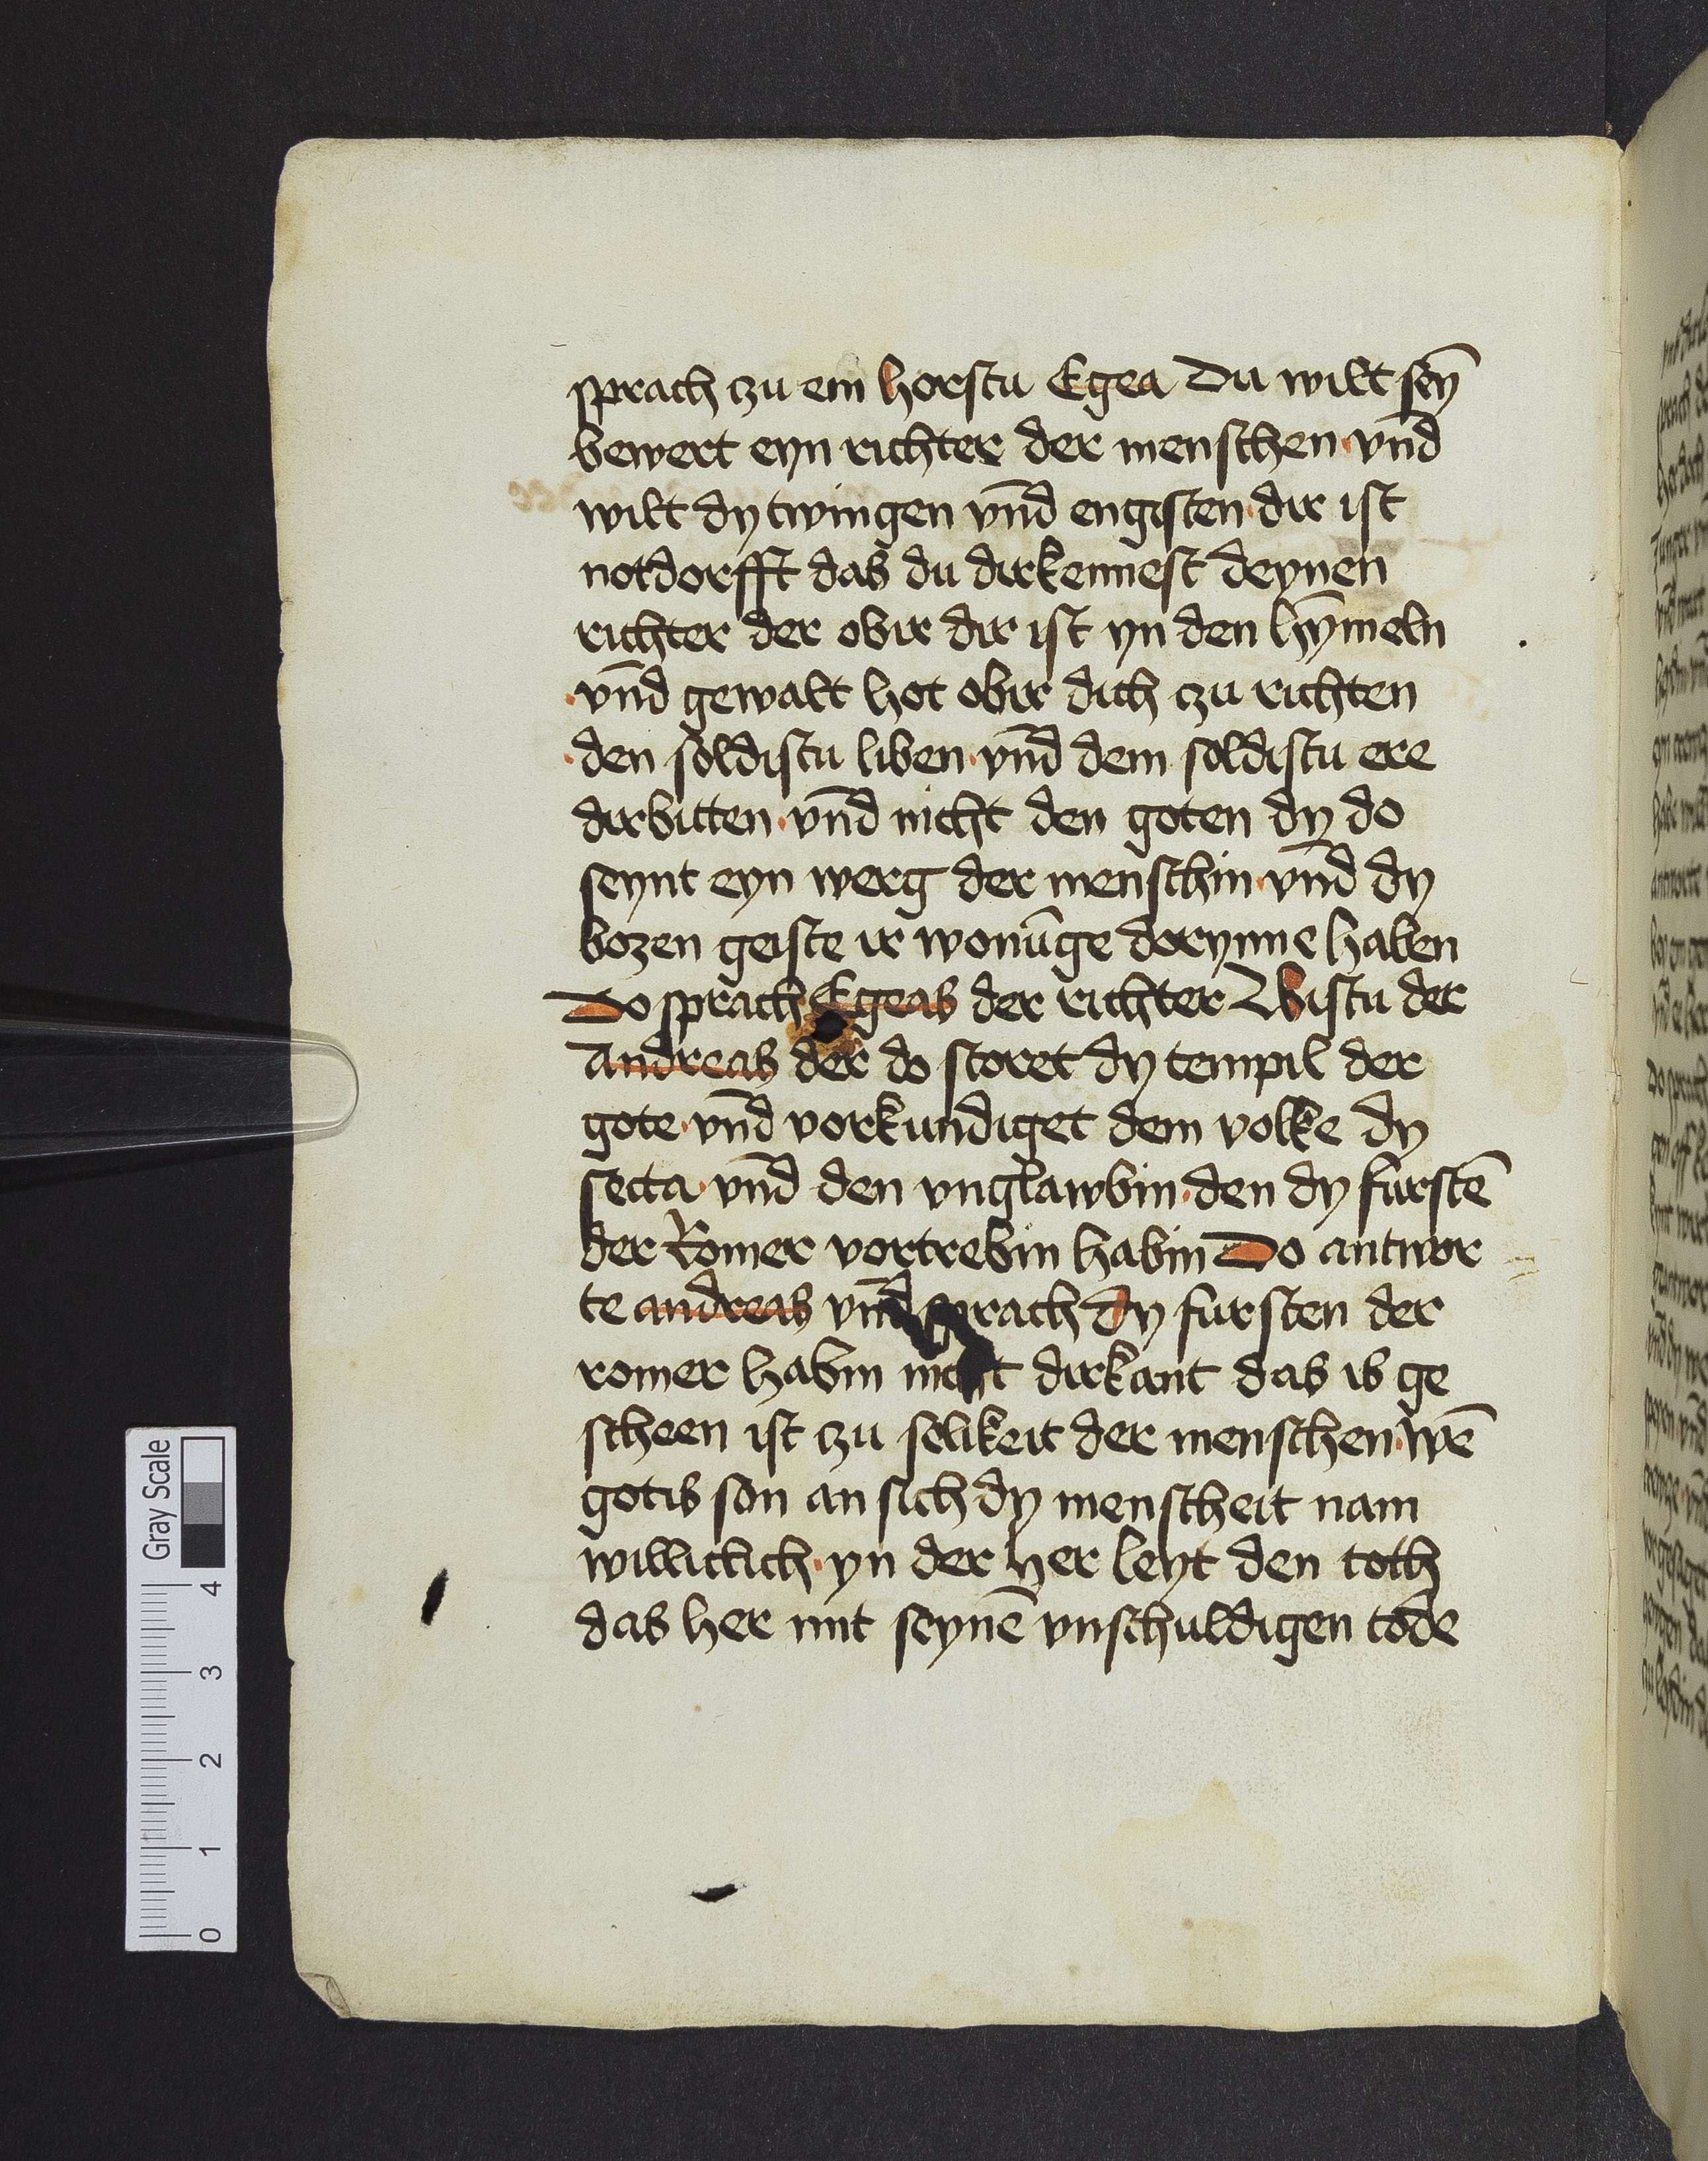 sprach czu em horstu Egea Du wilt sey̅
bewert eyn richter der menschen vn̅d
wilt dy twingen vn̅d engisten dir ist
notdorfft das du dirkennest deynen
richter der obir dir ist yn den hy̅meln
vn̅d gewalt hot obir dich czu richten
den soldistu liben vn̅d dem soldistu ere
dirbitten vn̅d nicht den goten dy do
seynt eyn werg der menschin vn̅d dy
bozen geiste ir wonu̅ge dorynne haben
Do sprach Egeas der richter Bistu der
Andreas der do storet dy tempil der
gote vn̅d vorkundiget dem volke dy
secta vn̅d den vnglawbin den dy furste̅
der Romer vortrebin habin Do antwor
te andreas vn̅d sprach dy fursten der
romer habin nicht dirkant das is ge
scheen ist czu selikeit der menschen we̅
gotis son an sich dy menscheit nam
williclich yn der her leyt den toth
das her mit seyne̅ vnschuldigen tode
Gray Scale
4
3
2
1
0